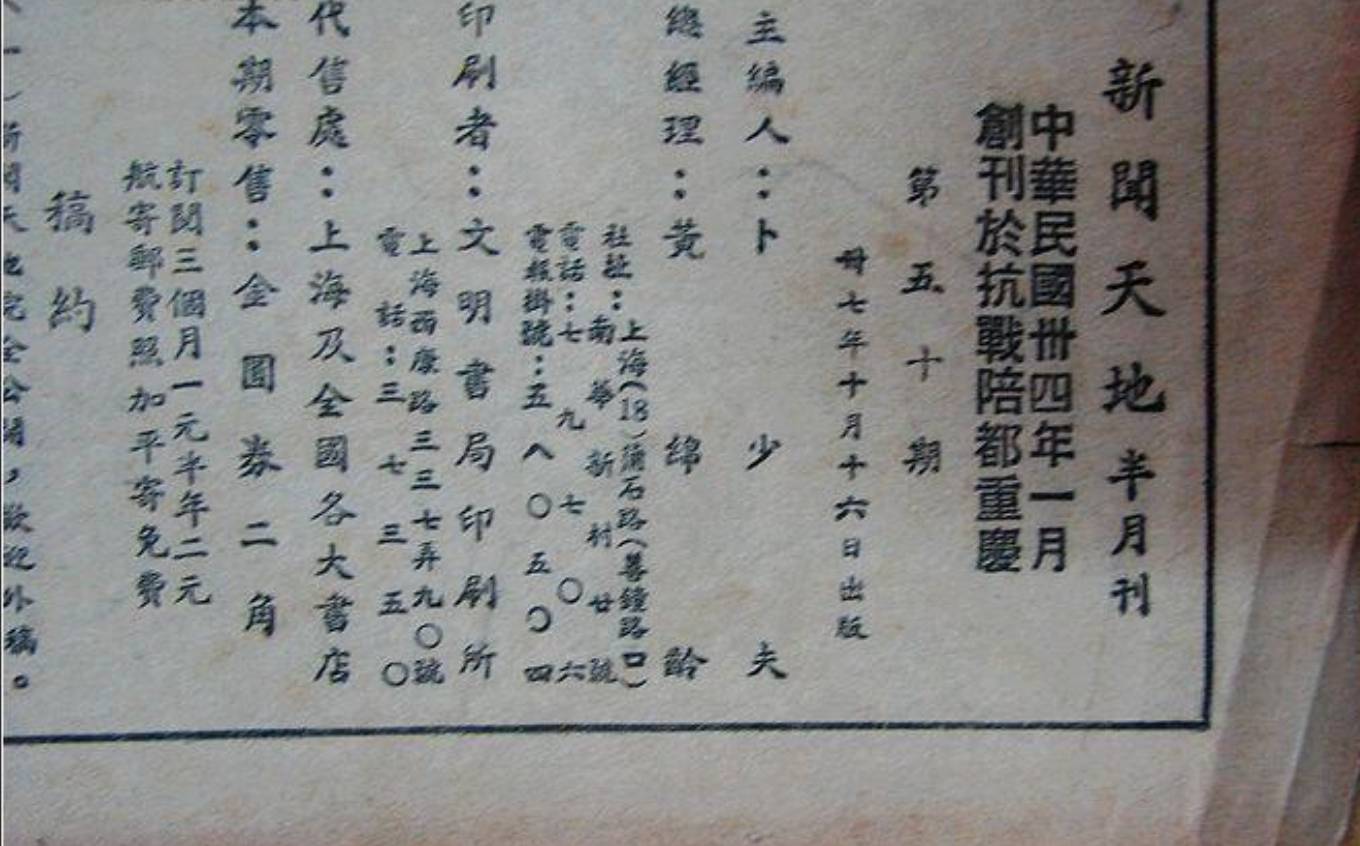 新聞天地半月刊
中華民國卅四年一月
創刊於抗戰陪都重慶
第五十期
卅七年十月十六日出版
主編人：卜少夫
總經理：黃綿齡
社址：上海(18)蒲石路(善鐘路口)
南華新村廿號
電話：七九七〇六
電報掛號：五八〇五〇四
印刷者：文明書局印刷所
上海西康路三三七弄九〇號
電話：三七三五〇
代售處：上海及全國各大書店
本期零售：金圓券二角
訂閱三個月一元半年二元
航寄郵費照加平寄免費
稿約
新聞天地完全公開，歡迎外稿。